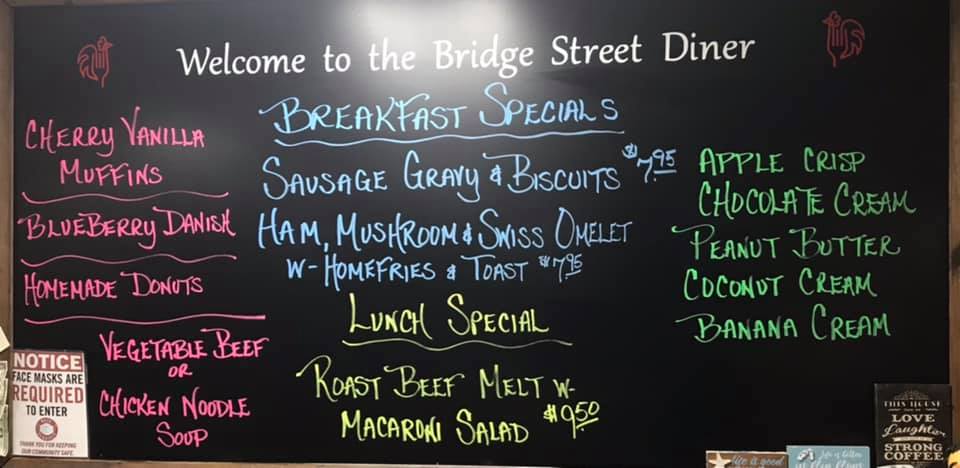 Welcome to the Bridge Street Diner
CHERRY VANILLA
MUFFINS
BLUEBERRY DANISH
HOMEMADE DONUTS
VEGETABLE BEEF
OR
CHICKEN NOODLE
SOUP
BREAKFAST SPECIALS
SAUSAGE GRAVY & BISCUITS $7.95
HAM, MUSHROOM & SWISS OMELET
W- HOMEFRIES & TOAST $7.95
LUNCH SPECIAL
ROAST BEEF MELT W-
MACARONI SALAD $9.50
APPLE CRISP
CHOCOLATE CREAM
PEANUT BUTTER
COCONUT CREAM
BANANA CREAM
NOTICE
FACE MASKS ARE
REQUIRED
TO ENTER
THANK YOU FOR KEEPING
OUR COMMUNITY SAFE.
life is good
Life is better
THIS HOUSE
LOVE
Laughter
STRONG
COFFEE